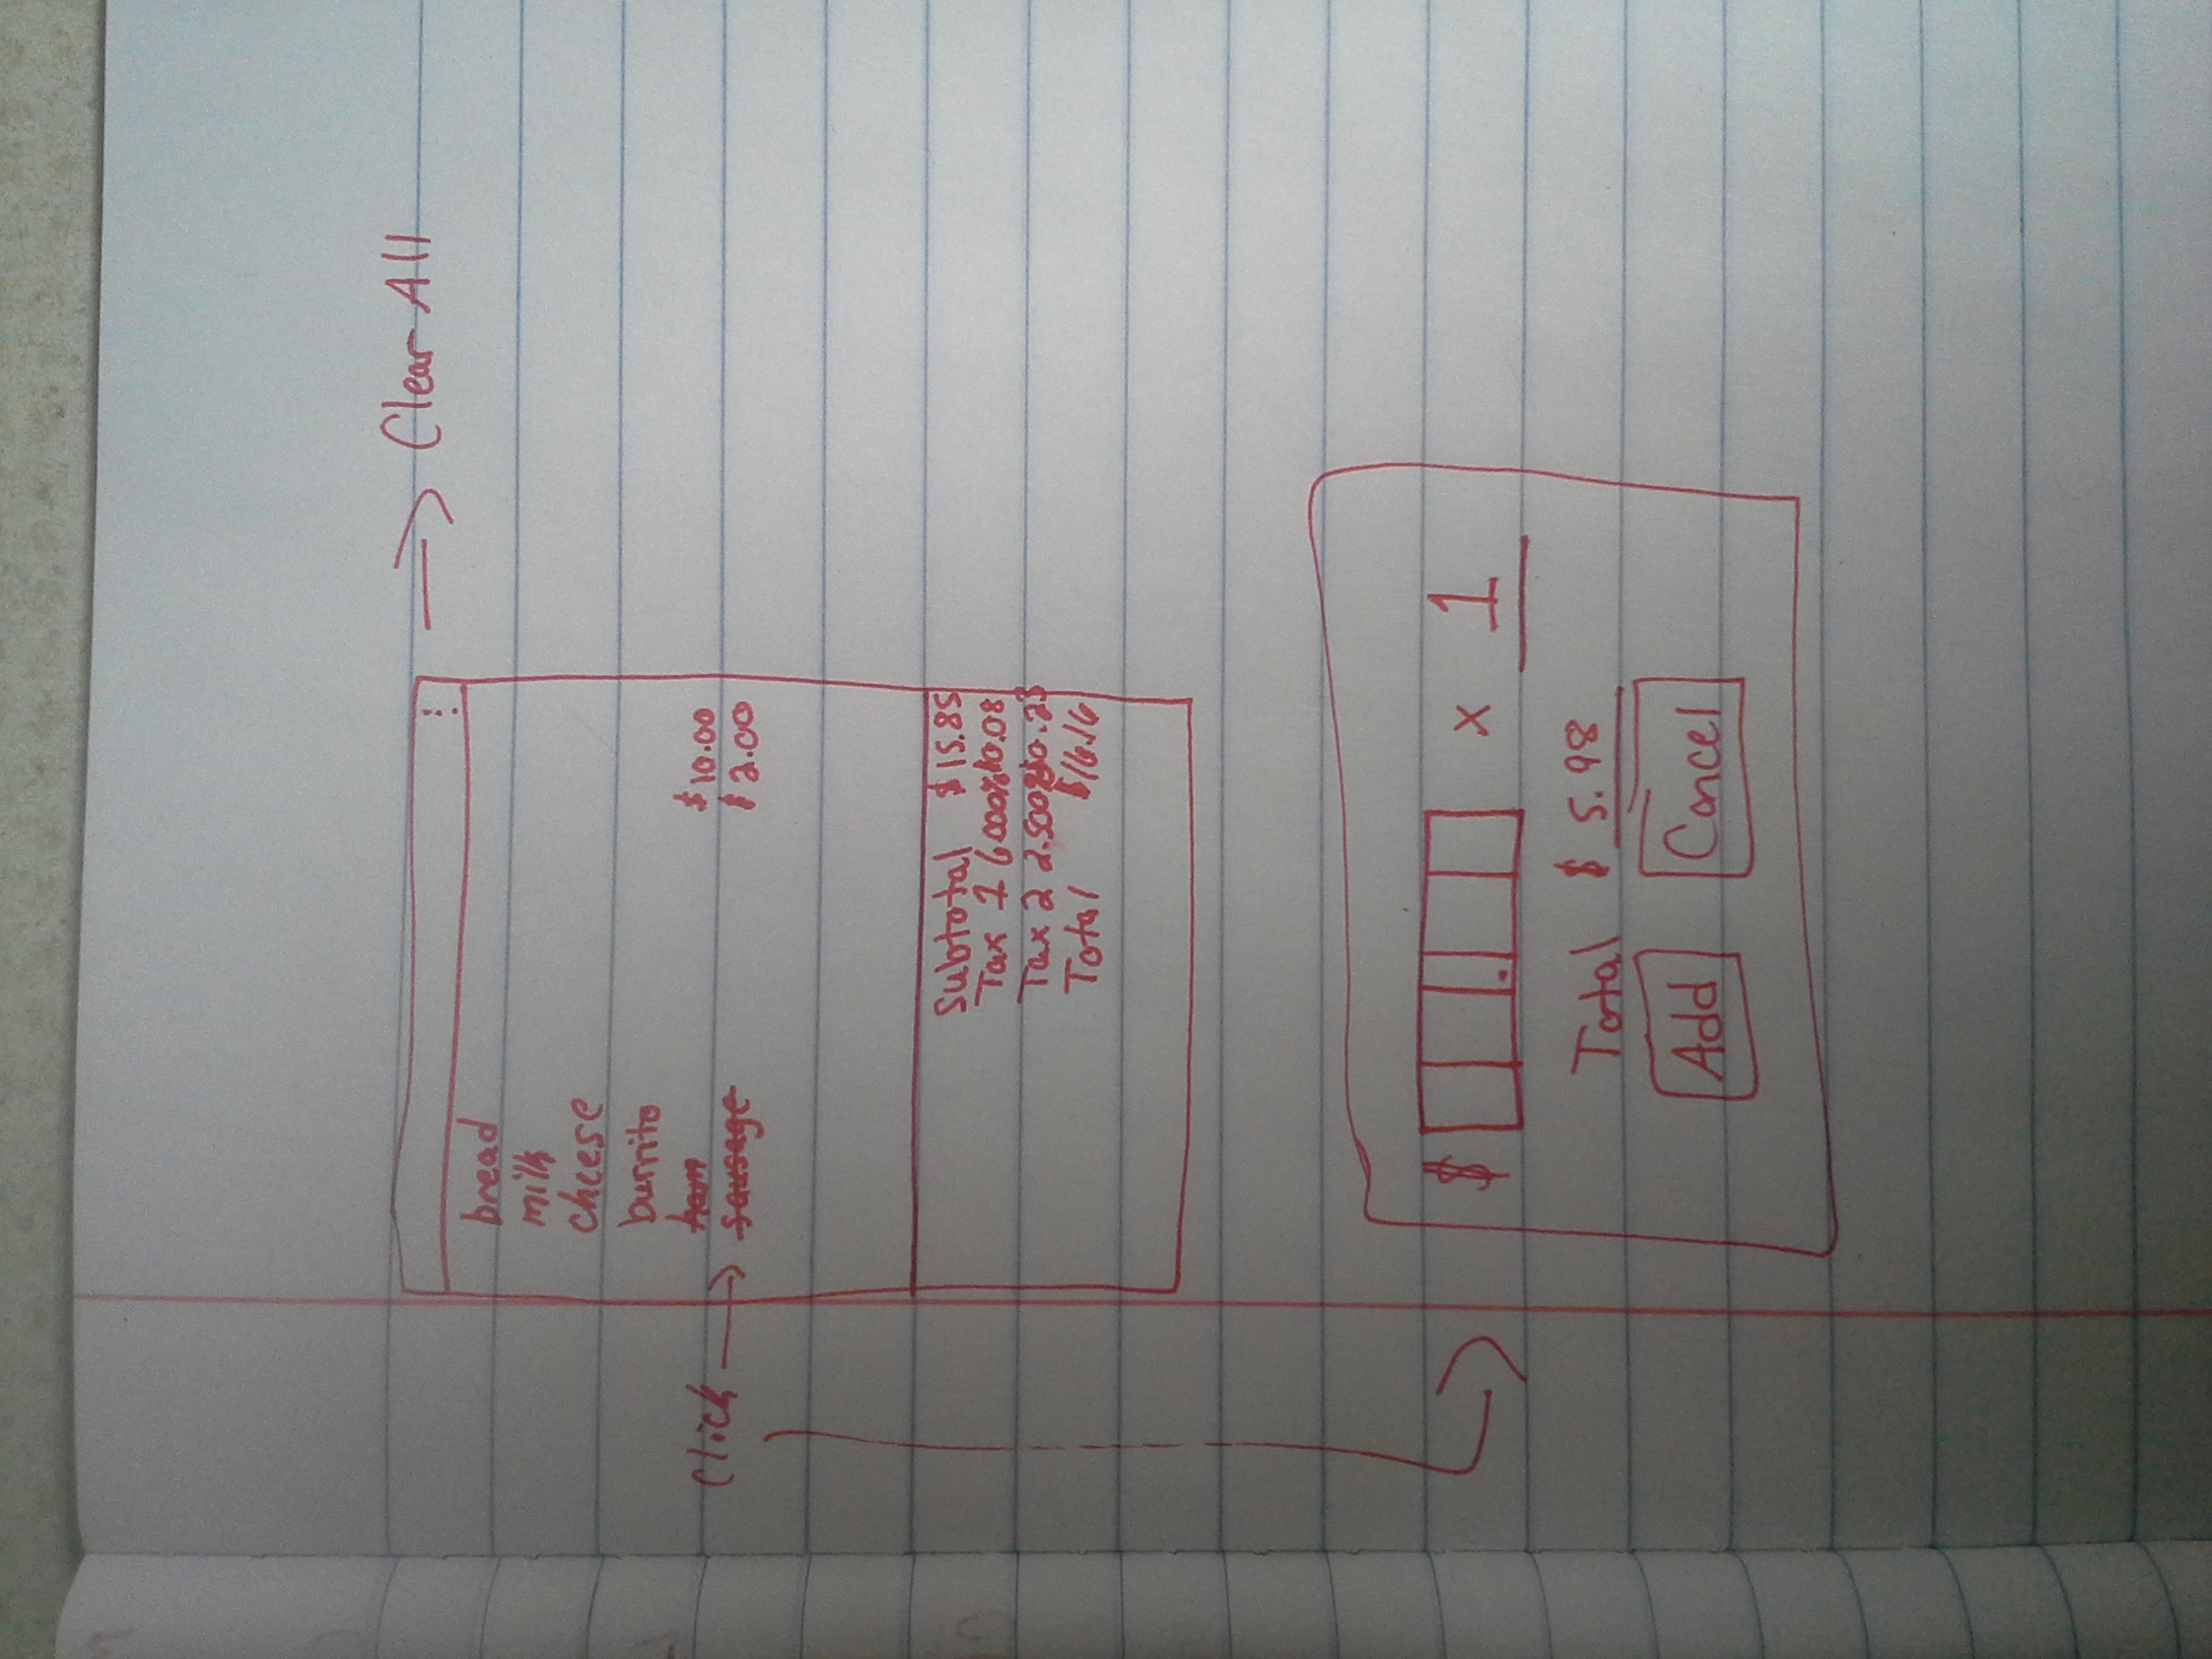 Clear All
bread
milk
cheese
burrito
ham $10.00
click sausage $2.00
Subtotal $15.85
Tax 1 6.000% $0.08
Tax 2 2.500% $0.23
Total $16.16
$ . x 1
Total $ 5.98
Add Cancel